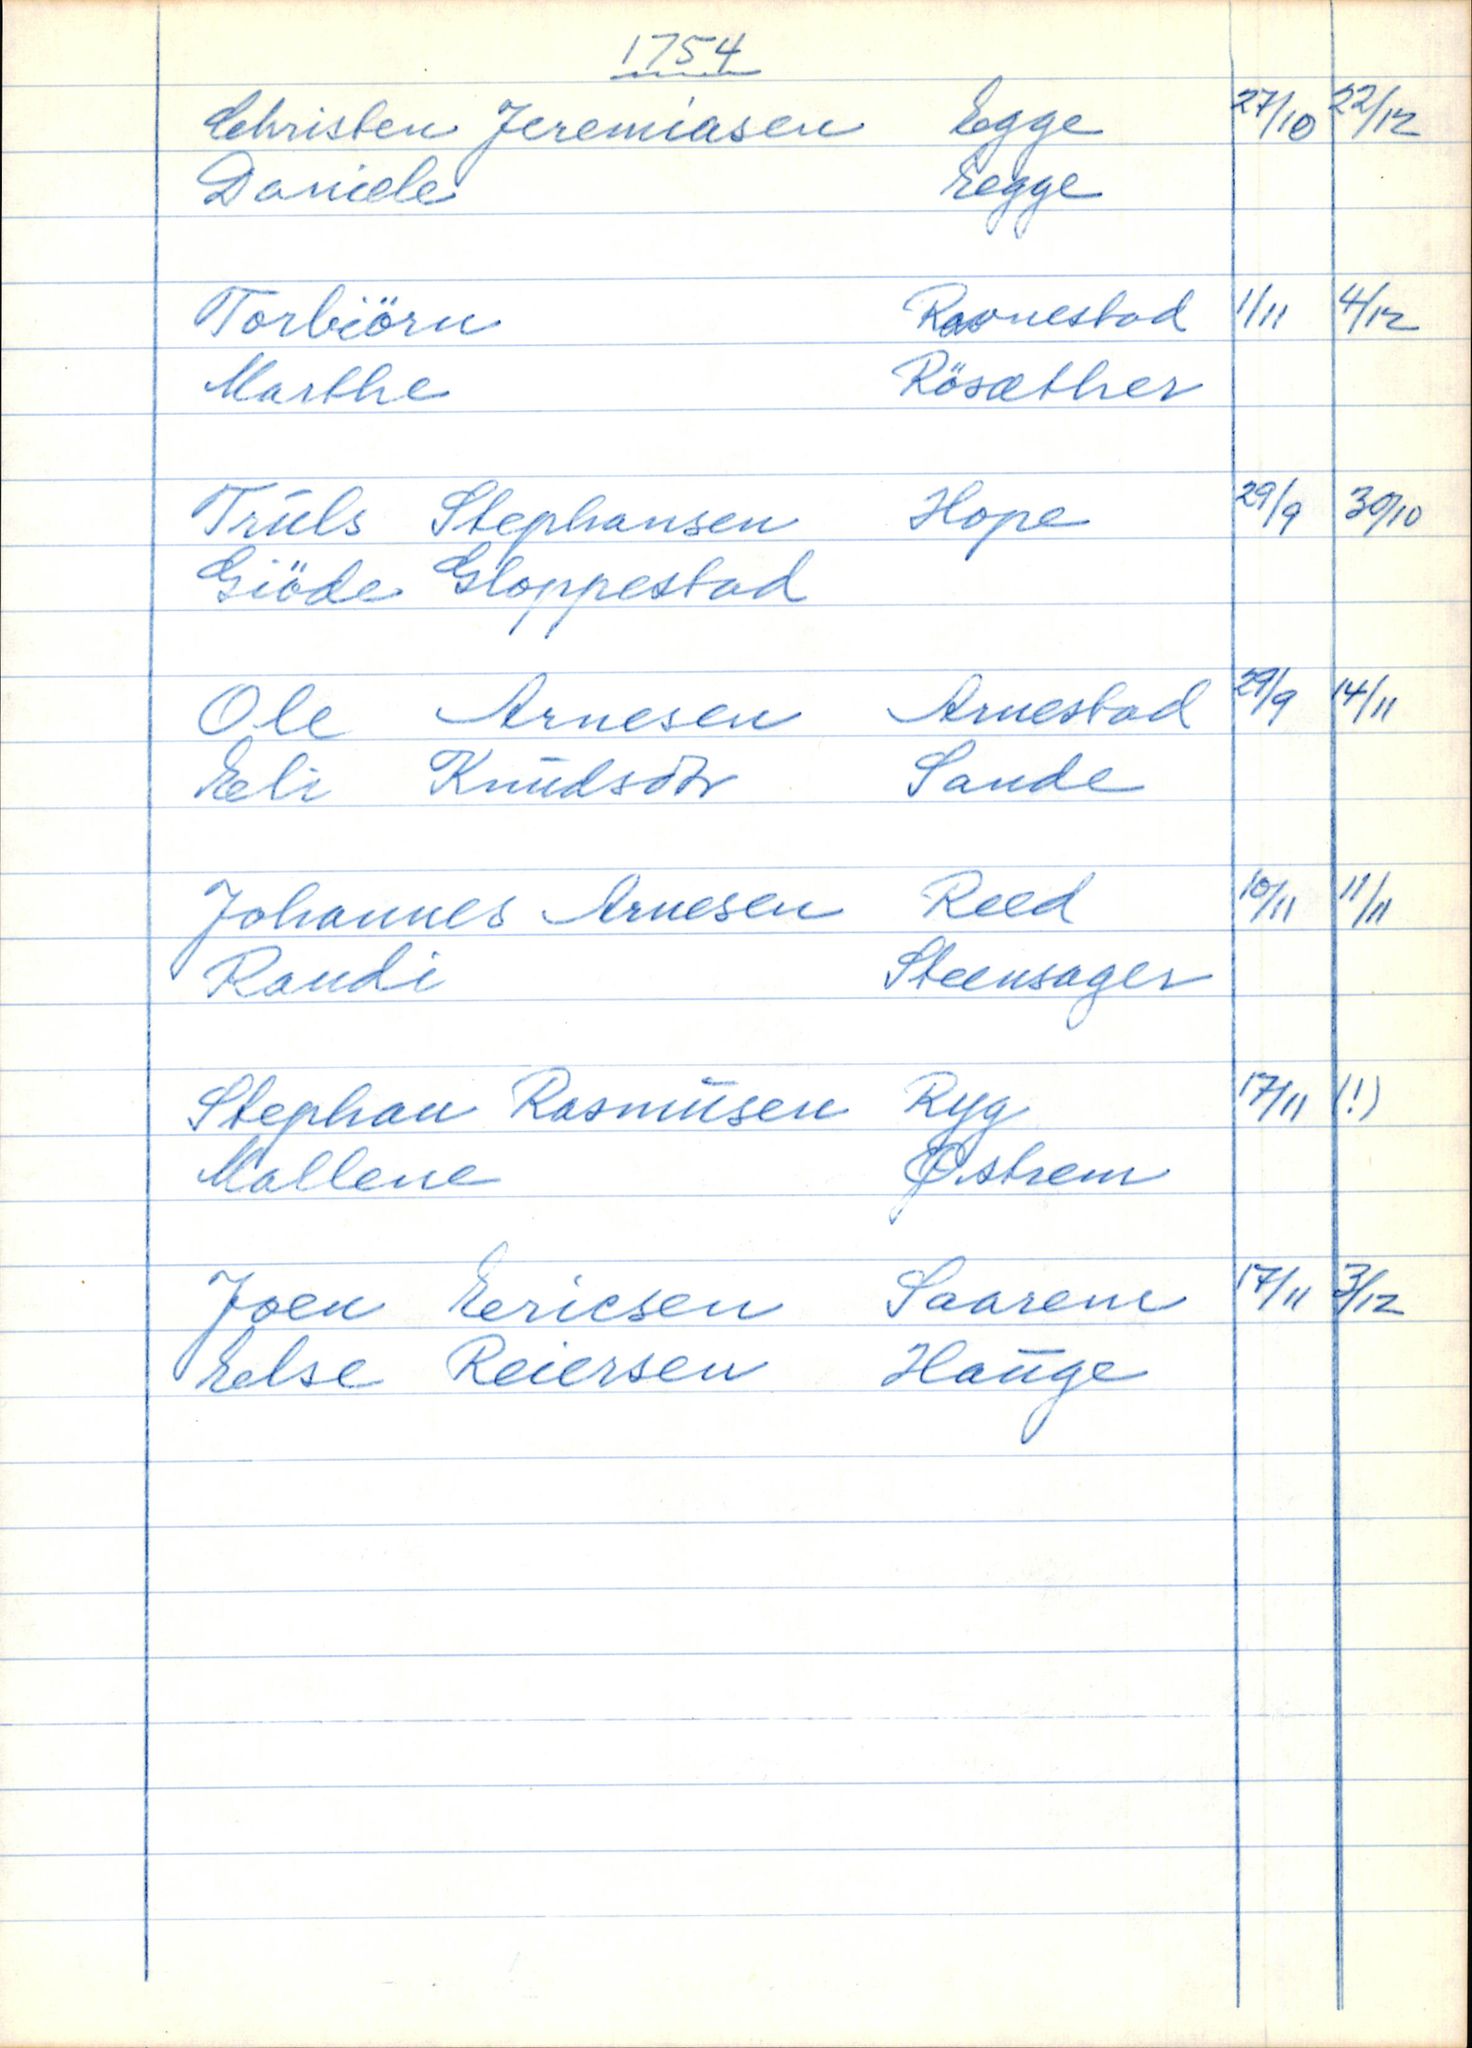 1754
Christen Jeremiasen Egge 27/10 22/12
Daniele Egge
Torbiörn Ravnestad 1/11 4/12
Marthe Rösæther
Truls Stephansen Hope 29/9 30/10
Giöde Gloppestad
Ole Arnesen Arnestad 29/9 14/11
Eli Knudsdtr Sande
Johannes Arnesen Reed 10/11 11/11
Randi Steensager
Stephan Rasmusen Ryg 17/11 (!)
Mallene Østrem
Joen Ericsen Saarem 17/11 3/12
Else Reiersen Hauge